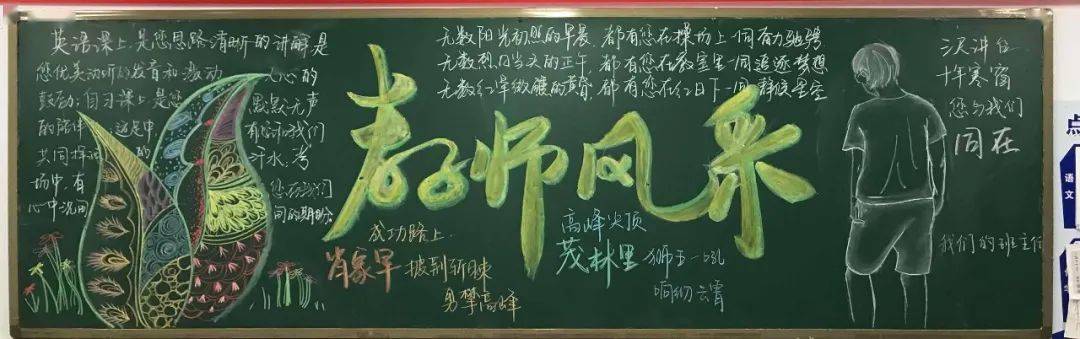 英语课上,是您思路清晰的讲解是
您优美动听的发音和激动人心的
鼓励;自习课上是您默默无声
的陪伴
有您和我们
共同探讨的汗水;考
场中,有您在我们
心中
同的期盼
教师风采
无数阳光初照的早晨,都有您在操场上一同奋力驰骋
无数烈日当头的正午,都有您在教室里一同追逐梦想
无数红晕微醺的黄昏,都有您在红日下一同静候星空
成功路上
肖家早 披荆斩棘
勇攀高峰
高峰尖顶
茂林里 狮王一吼
响彻云霄
三尺讲台
十年寒窗
您与我们
同在
我们的班主任
点
语文